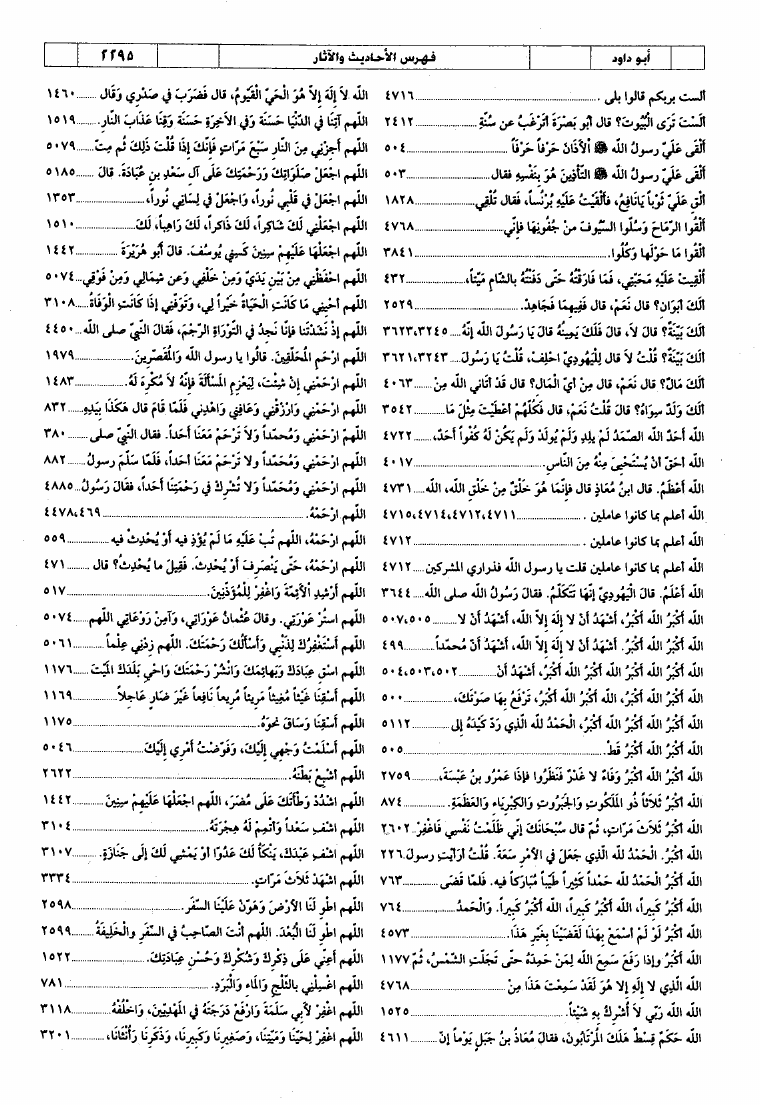 أبو داود
فهرس الأحاديث والآثار
٢٢٩٥
ألست بربكم قالوا بلى . ................ ٤٧١٦
ألَسْتَ تَرَى الْبُيُوتَ؟ قال أبُو بَصْرَةَ أتَرْغَبُ عن سُنَّةِ ٢٤١٢
ألْقَى عَلَيَّ رسولُ الله ﷺ الأَذَانَ حَرْفاً حَرْفاً ........ ٥٠٤
ألْقَى عَلَيَّ رسولُ الله ﷺ التَّأْذِينَ هُوَ بِنَفْسِهِ فقال ........ ٥٠٣
ألْقِ عَلَيَّ ثَوْباً يَانَافِعُ، فألْقَيْتُ عَلَيْهِ بُرْنُساً، فقال تُلْقِي ........ ١٨٢٨
ألْقُوا الرِّمَاحَ وَسُلُّوا السُّيُوفَ مِنْ جُفُونِهَا فإنِّي ........ ٤٧٦٨
ألْقُوا مَا حَوْلَهَا وَكُلُوا. ........ ٣٨٤١
ألْقِيَتْ عَلَيْهِ مَحَبَّتِي، فَمَا فَارَقْتُهُ حَتَّى دَفَنْتُهُ بالشَّامِ مَيِّتاً، ........ ٤٣٢
ألَكَ أبَوَانِ؟ قال نَعَمْ، قال فَفِيهِمَا فَجَاهِدْ. ........ ٢٥٢٩
ألَكَ بَيِّنَةٌ؟ قالَ لاَ، قالَ فَلَكَ يَمِينُهُ قالَ يَا رَسُولَ الله إنَّهُ ... ٣٦٢٣،٣٢٤٥
ألَكَ بَيِّنَةٌ؟ قُلْتُ لاَ قال لِلْيَهُودِيِّ احْلِفْ، قُلْتُ يَا رَسُولَ .... ٣٦٢١،٣٢٤٣
ألَكَ مَالٌ؟ قال نَعَمْ، قال مِنْ أيِّ الْمَالِ؟ قال قَدْ أتَانِي الله مِنْ ........ ٤٠٦٣
ألَكَ وَلَدٌ سِوَاهُ؟ قالَ قُلْتُ نَعَمْ، قال فَكُلَّهُمْ أعْطَيْتَ مِثْلَ مَا ........ ٣٥٤٢
الله أحَدٌ الله الصَّمَدُ لَمْ يَلِدْ وَلَمْ يُولَدْ وَلَم يَكُنْ لَهُ كُفُواً أحَدٌ، ........ ٤٧٢٢
الله أحَقُّ أنْ يُسْتَحْيَى مِنْهُ مِنَ النَّاسِ. ........ ٤٠١٧
الله أعْظَمُ. قال ابنُ مُعَاذٍ قال فإنَّمَا هُوَ خَلْقٌ مِنْ خَلْقِ الله، الله ........ ٤٧٣١
الله أعلم بما كانوا عاملين . ........ ٤٧١٥،٤٧١٤،٤٧١٢،٤٧١١
الله أعلم بما كانوا عاملين . ........ ٤٧١٢
الله أعلم بما كانوا عاملين قلت يا رسول الله فذراري المشركين ٤٧١٢
الله أعْلَمُ. قالَ الْيَهُودِيُّ إنَّهَا تَتَكَلَّمُ. فقالَ رَسُولُ الله صلى الله ........ ٣٦٤٤
الله أكْبَرُ الله أكْبَرُ، أشْهَدُ أنْ لا إلَهَ إلاَّ الله، أشْهَدُ أنْ لا ........ ٥٠٧،٥٠٥
الله أكْبَرُ الله أكْبَرُ. أشْهَدُ أنْ لا إلَهَ إلاَّ الله، أشْهَدُ أنَّ مُحمَّداً ........ ٤٩٩
الله أكْبَرُ الله أكْبَرُ الله أكْبَرُ الله أكْبَرُ، أشْهَدُ أنْ ........ ٥٠٤،٥٠٣،٥٠٢
الله أكْبَرُ الله أكْبَرُ، الله أكْبَرُ الله أكْبَرُ، تَرْفَعُ بِهَا صَوْتَكَ، ........ ٥٠٠
الله أكْبَرُ الله أكْبَرُ الله أكْبَرُ، الْحَمْدُ لله الَّذِي رَدَّ كَيْدَهُ إلى ........ ٥١١٢
الله أكْبَرُ الله أكْبَرُ قَطْ. ........ ٥٠٥
الله أكْبَرُ الله أكْبَرُ وَفَاءٌ لا غَدْرَ فَنَظَرُوا فإذَا عَمْرُو بنُ عَبَسَةَ، ........ ٢٧٥٩
الله أكْبَرُ ثَلاَثاً ذُو المَلَكُوتِ وَالجَبَرُوتِ وَالكِبْرِيَاءِ وَالعَظَمَةِ. ........ ٨٧٤
الله أكْبَرُ ثَلاَثَ مَرَّاتٍ، ثُمَّ قال سُبْحَانَكَ إنِّي ظَلَمْتُ نَفْسِي فَاغْفِرْ ... ٢٦٠٢
الله أكْبَرُ. الْحَمْدُ لله الَّذِي جَعَلَ في الأمْرِ سَعَةً. قُلْتُ أرَأيْتِ رسولَ ٢٢٦
الله أكْبَرُ الْحَمْدُ لله حَمْداً كَثِيراً طَيِّباً مُبَارَكاً فيه. فلمَّا قَضَى ........ ٧٦٣
الله أكْبَرُ كَبِيراً، الله أكْبَرُ كَبِيراً، الله أكْبَرُ كَبِيراً. وَالْحَمْدُ ........ ٧٦٤
الله أكْبَرُ لَوْ لَمْ أسْمَعْ بِهَذَا لَقَضَيْنَا بِغَيْرِ هَذَا. ........ ٤٥٧٣
الله أكْبَرُ وإذا رَفَعَ سَمِعَ الله لِمَنْ حَمِدَهُ حتَّى تَجَلَّتِ الشَّمْسُ، ثُمَّ ١١٧٧
الله الَّذِي لا إلَهَ إلا هُوَ لَقَدْ سَمِعْتَ هَذَا مِنْ ........ ٤٧٦٨
الله الله رَبِّي لاَ أُشْرِكُ بِهِ شَيْئاً. ........ ١٥٢٥
الله حَكَمٌ قِسْطٌ هَلَكَ المُرْتَابُونَ، فقالَ مُعَاذُ بنُ جَبَلٍ يَوْماً إنَّ ........ ٤٦١١
الله لاَ إلَهَ إلاَّ هُوَ الْحَيُّ الْقَيُّومُ، قال فَضَرَبَ في صَدْرِي وَقَال ........ ١٤٦٠
اللّهم آتِنَا في الدُّنْيَا حَسَنَةً وفي الآخِرَةِ حَسَنَةً وَقِنَا عَذَابَ النَّارِ. ........ ١٥١٩
اللّهم أجِرْنِي مِنَ النَّارِ سَبْعَ مَرَّاتٍ فَإنَّكَ إذَا قُلْتَ ذَلِكَ ثُمَّ مِتَّ ........ ٥٠٧٩
اللّهم اجْعَلْ صَلَوَاتِكَ وَرَحْمَتَكَ عَلَى آلِ سَعْدِ بنِ عُبَادَةَ. قالَ ........ ٥١٨٥
اللّهم اجْعَلْ في قَلْبِي نُوراً، وَاجْعَلْ في لِسَانِي نُوراً، ........ ١٣٥٣
اللّهم اجْعَلْنِي لَكَ شَاكِراً، لَكَ ذَاكِراً، لَكَ رَاهِباً، لَكَ ........ ١٥١٠
اللّهم اجْعَلْهَا عَلَيْهِمْ سِنِينَ كَسِنِي يُوسُفَ. قالَ أبُو هُرَيْرَةَ ........ ١٤٤٢
اللّهم احْفَظْنِي مِنْ بَيْنِ يَدَيَّ وَمِنْ خَلْفِي وَعن شِمَالِي وَمِنْ فَوْقِي، ........ ٥٠٧٤
اللّهم أحْيِنِي مَا كَانَتِ الْحَيَاةُ خَيْراً لِي، وَتَوَفَّنِي إذَا كَانَتِ الْوَفَاةُ ........ ٣١٠٨
اللّهم إذْ نَشَدْتَنَا فإنَّا نَجِدُ في التَّوْرَاةِ الرَّجْمَ، فَقالَ النَّبيُّ صلى الله ........ ٤٤٥٠
اللّهم ارْحَمِ المُحَلِّقِينَ. قالُوا يا رسولَ الله وَالمُقَصِّرِينَ. ........ ١٩٧٩
اللّهم ارْحَمْنِي إنْ شِئْتَ، لِيَعْزِمِ الْمَسْأَلَةَ فإنَّهُ لاَ مُكْرِهَ لَهُ. ........ ١٤٨٣
اللّهم ارْحَمْنِي وَارْزُقْنِي وَعَافِنِي وَاهْدِنِي فَلَمَّا قامَ قال هَكَذَا بِيَدِهِ ........ ٨٣٢
اللّهم ارْحَمْنِي وَمُحمَّداً وَلاَ تَرْحَمْ مَعَنَا أحَداً. فقال النَّبيُّ صلى ........ ٣٨٠
اللّهم ارْحَمْنِي وَمُحمَّداً ولا تَرْحَمْ مَعَنَا أحَداً، فَلَمَّا سَلَّمَ رسولُ ........ ٨٨٢
اللّهم ارْحَمْنِي وَمُحَمَّداً وَلاَ تُشْرِكْ في رَحْمَتِنَا أحَداً، فقَالَ رَسُولُ ........ ٤٨٨٥
اللّهم ارْحَمْهُ. ........ ٤٤٧٨،٤٦٩
اللّهم ارْحَمْهُ، اللّهم تُبْ عَلَيْهِ مَا لَمْ يُؤْذِ فيه أوْ يُحْدِثْ فيه ........ ٥٥٩
اللّهم ارْحَمْهُ، حتَّى يَنْصَرِفَ أوْ يُحْدِثَ. فَقِيلَ ما يُحْدِثُ؟ قال ........ ٤٧١
اللّهم أرْشِدِ الأَئِمَّةَ وَاغْفِرْ لِلْمُؤَذِّنِينَ. ........ ٥١٧
اللّهم اسْتُرْ عَوْرَتِي. وقالَ عُثْمَانُ عَوْرَاتِي، وَآمِنْ رَوْعَاتِي اللّهم ........ ٥٠٧٤
اللّهم أسْتَغْفِرُكَ لِذَنْبِي وَأسْأَلُكَ رَحْمَتَكَ. اللّهم زِدْنِي عِلْماً ........ ٥٠٦١
اللّهم اسْقِ عِبَادَكَ وَبَهَائِمَكَ وَانْشُرْ رَحْمَتَكَ وَاحْيِ بَلَدَكَ المَيِّتَ ........ ١١٧٦
اللّهم أسْقِنَا غَيْثاً مُغِيثاً مَرِيئاً مُرِيعاً نَافِعاً غَيْرَ ضَارٍّ عَاجِلاً ........ ١١٦٩
اللّهم أسْقِنَا وَسَاقَ نحوَهُ. ........ ١١٧٥
اللّهم أسْلَمْتُ وَجْهِي إلَيْكَ، وَفَوَّضْتُ أمْرِي إلَيْكَ ........ ٥٠٤٦
اللّهم اشْبِعْ بَطْنَهُ. ........ ٢٦٢٢
اللّهم اشْدُدْ وَطْأَتَكَ عَلَى مُضَرَ، اللّهم اجْعَلْهَا عَلَيْهِمْ سِنِينَ ........ ١٤٤٢
اللّهم اشْفِ سَعْداً وَأتْمِمْ لَهُ هِجْرَتَهُ. ........ ٣١٠٤
اللّهم اشْفِ عَبْدَكَ، يَنْكَأُ لَكَ عَدُوًّا أوْ يَمْشِي لَكَ إلَى جَنَازَةٍ. ........ ٣١٠٧
اللّهم اشْهَدْ ثَلاَثَ مَرَّاتٍ. ........ ٣٣٣٤
اللّهم اطْوِ لَنَا الأرْضَ وَهَوِّنْ عَلَيْنَا السَّفَرَ. ........ ٢٥٩٨
اللّهم اطْوِ لَنَا الْبُعْدَ. اللّهم أنْتَ الصَّاحِبُ في السَّفَرِ وَالْخَلِيفَةُ ........ ٢٥٩٩
اللّهم أعِنِّي عَلَى ذِكْرِكَ وَشُكْرِكَ وَحُسْنِ عِبَادَتِكَ. ........ ١٥٢٢
اللّهم اغْسِلْنِي بالثَّلْجِ وَالمَاءِ وَالْبَرَدِ. ........ ٧٨١
اللّهم اغْفِرْ لأبِي سَلَمَةَ وَارْفَعْ دَرَجَتَهُ في المَهْدِيِّينَ، وَاخْلُفْهُ ........ ٣١١٨
اللّهم اغْفِرْ لِحَيِّنَا وَمَيِّتِنَا، وَصَغِيرِنَا وَكَبِيرِنَا، وَذَكَرِنَا وَأُنْثَانَا، ........ ٣٢٠١